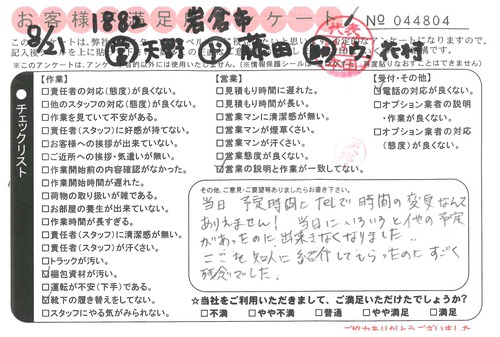 お客様満足アンケート
No 044804
1882 岩倉市
8/21
天野 藤田 花村
※このアンケートは、アンケート目的以外には使用いたしません。
チェックリスト
【作業】
□責任者の対応(態度)が良くない。
□他のスタッフの対応(態度)が良くない。
□作業を見ていて不安がある。
□責任者(スタッフ)に好感が持てない。
□お客様への挨拶が出来ていない。
□ご近所への挨拶・気遣いが無い。
□作業開始前の内容確認がなかった。
□作業開始時間が遅れた。
□荷物の取り扱いが雑である。
□お部屋の養生が出来ていない。
□作業時間が長すぎる。
□責任者(スタッフ)に清潔感が無い。
□責任者(スタッフ)が汗くさい。
□トラックが汚い。
□梱包資材が汚い。
□運転が不安(下手)である。
□靴下の履き替えをしてない。
□スタッフにやる気がみられない。
【営業】
□見積もり時間に遅れた。
□見積もり時間が長い。
□営業マンに清潔感が無い。
□営業マンが煙草くさい。
□営業マンが汗くさい。
□営業態度が良くない。
□営業の説明と作業が一致してない。
【受付・その他】
□電話の対応が良くない。
□オプション業者の説明
・作業が良くない。
□オプション業者の対応
(態度)が良くない。
その他、ご意見・ご要望等ありましたらお書き下さい。
当日 予定時間になんで時間の変更なんて
ありえません! 当日にいろいろと他の予定
があったのに出来きなくなりました..
ここを知人に紹介してもらったのにすごく
残念でした。
☆当社をご利用いただきまして、ご満足いただけたでしょうか?
□不満 □やや不満 □普通 □やや満足 □満足
ご協力ありがとうございました